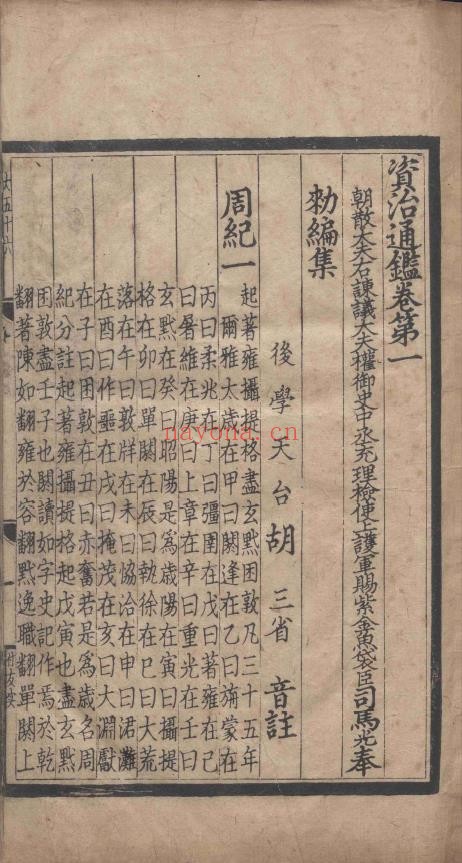 資治通鑑卷第一
朝散大夫右諫議大夫權御史中丞充理檢使上護軍賜紫金魚袋臣司馬光奉
勑編集
後學天台胡三省音註
周紀一
起著雍攝提格盡玄黓困敦凡三十五年
爾雅太歲在甲曰閼逢在乙曰旃蒙在
丙曰柔兆在丁曰彊圉在戊曰著雍在己
曰屠維在庚曰上章在辛曰重光在壬曰
玄黓在癸曰昭陽是爲歲陽在寅曰攝提
格在卯曰單閼在辰曰執徐在巳曰大荒
落在午曰敦牂在未曰協洽在申曰涒灘
在酉曰作噩在戌曰掩茂在亥曰大淵獻
在子曰困敦在丑曰赤奮若是爲歲名周
紀分註起著雍攝提格起戊寅也盡玄黓
困敦盡壬子也閼讀如字史記作焉於乾
翻著陳如翻雍於容翻黓逸職翻單閼上
大五十六
一
nayona.cn